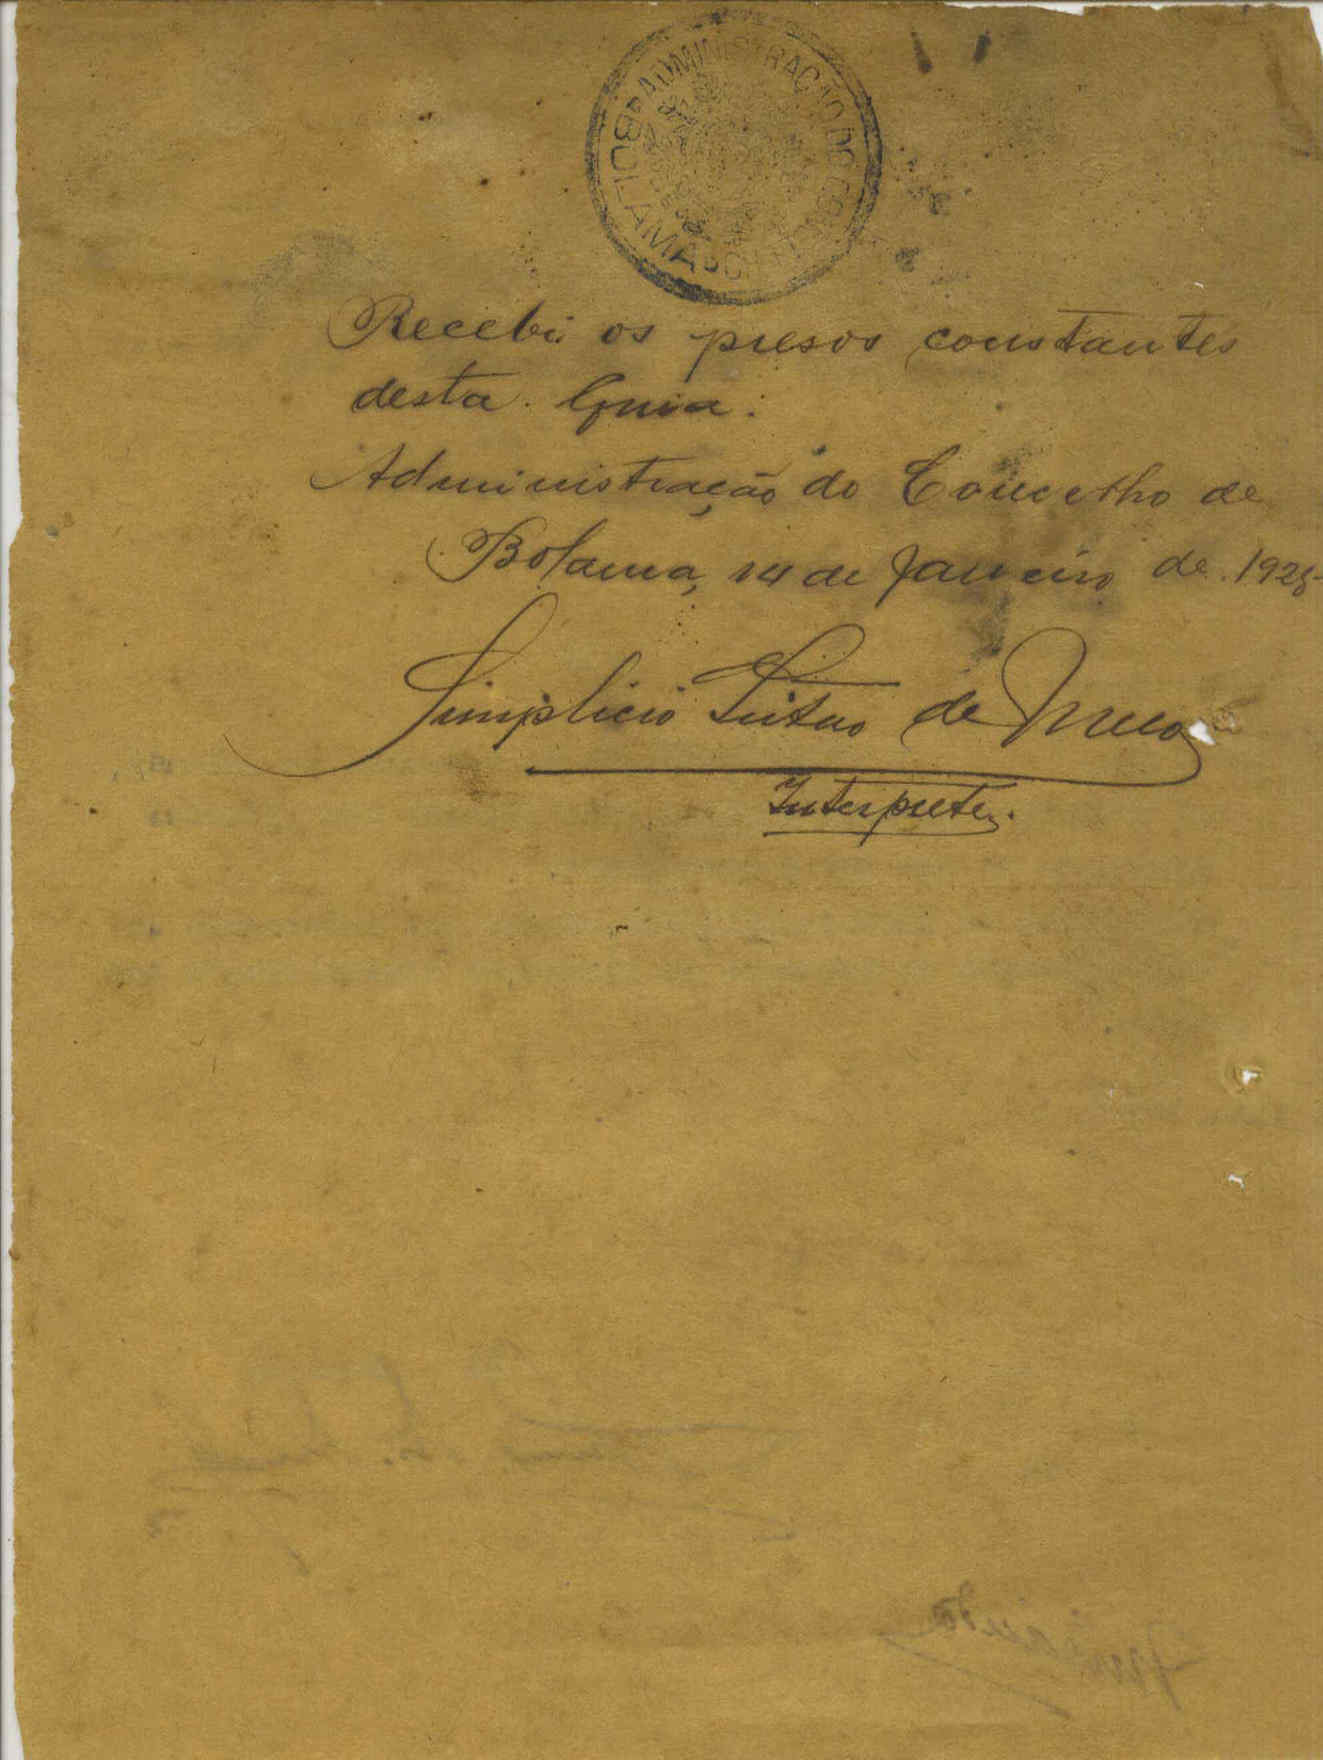 ADMINISTRAÇÃO DO CONCELHO
BOLAMA
Recebi os presos constantes
desta Guia.
Administração do Concelho de
Bolama, 14 de Janeiro de 192
Simplicio de
Interprete.